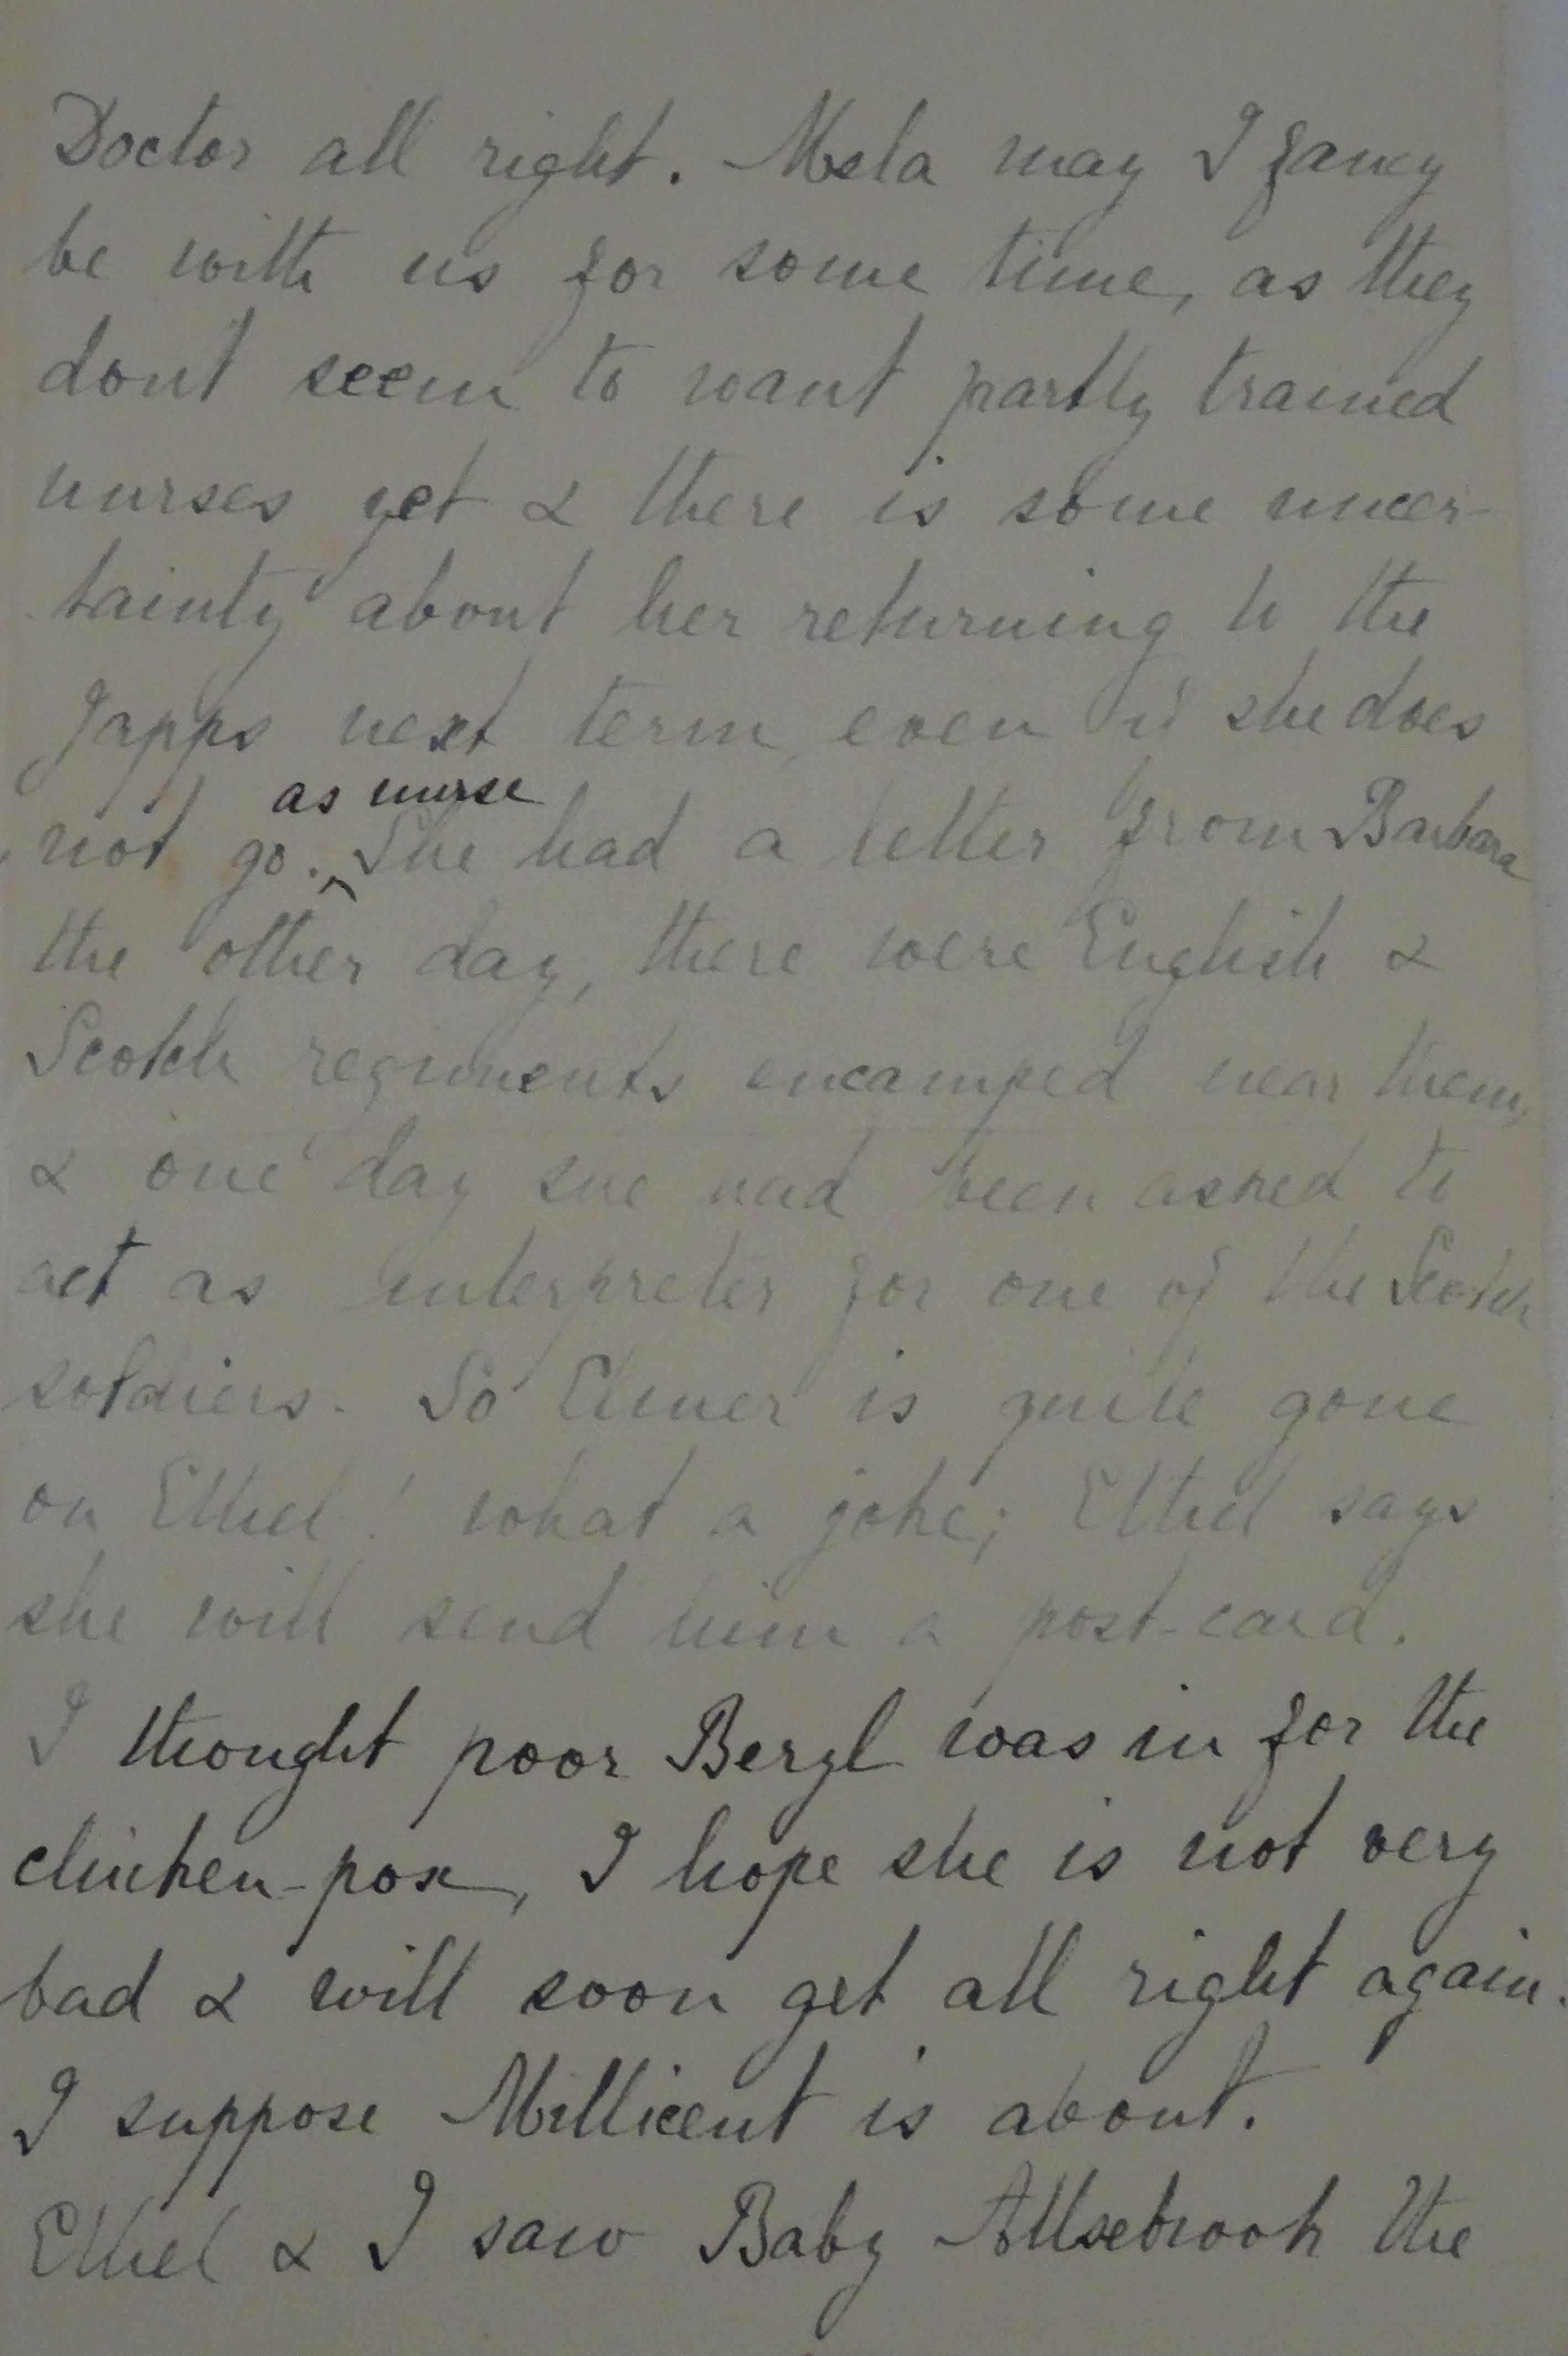 Doctor all right. Meta may I fancy
be with us for some time, as they
dont seem to want partly trained
nurses yet & there is some uncer-
tainty about her returning to the
Japps next term, even if she does
not go. as nurse She had a letter from Barbara
the other day, there were English &
Scotch regiments encamped near them,
& one day she had been asked to
act as interpreter for one of the Scotch
soldiers. So Elmer is quite gone
on Ethel! what a joke; Ethel says
she will send him a post-card.
I thought poor Beryl was in for the
chicken-pox, I hope she is not very
bad & will soon get all right again.
I suppose Millicent is about.
Ethel & I saw Baby Allsebrook the